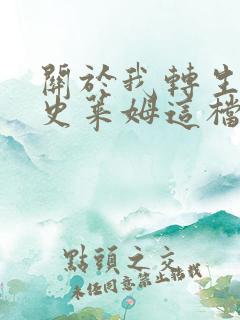 關於我轉生
史萊姆這檔
點頭之交
未任同意禁止轉載